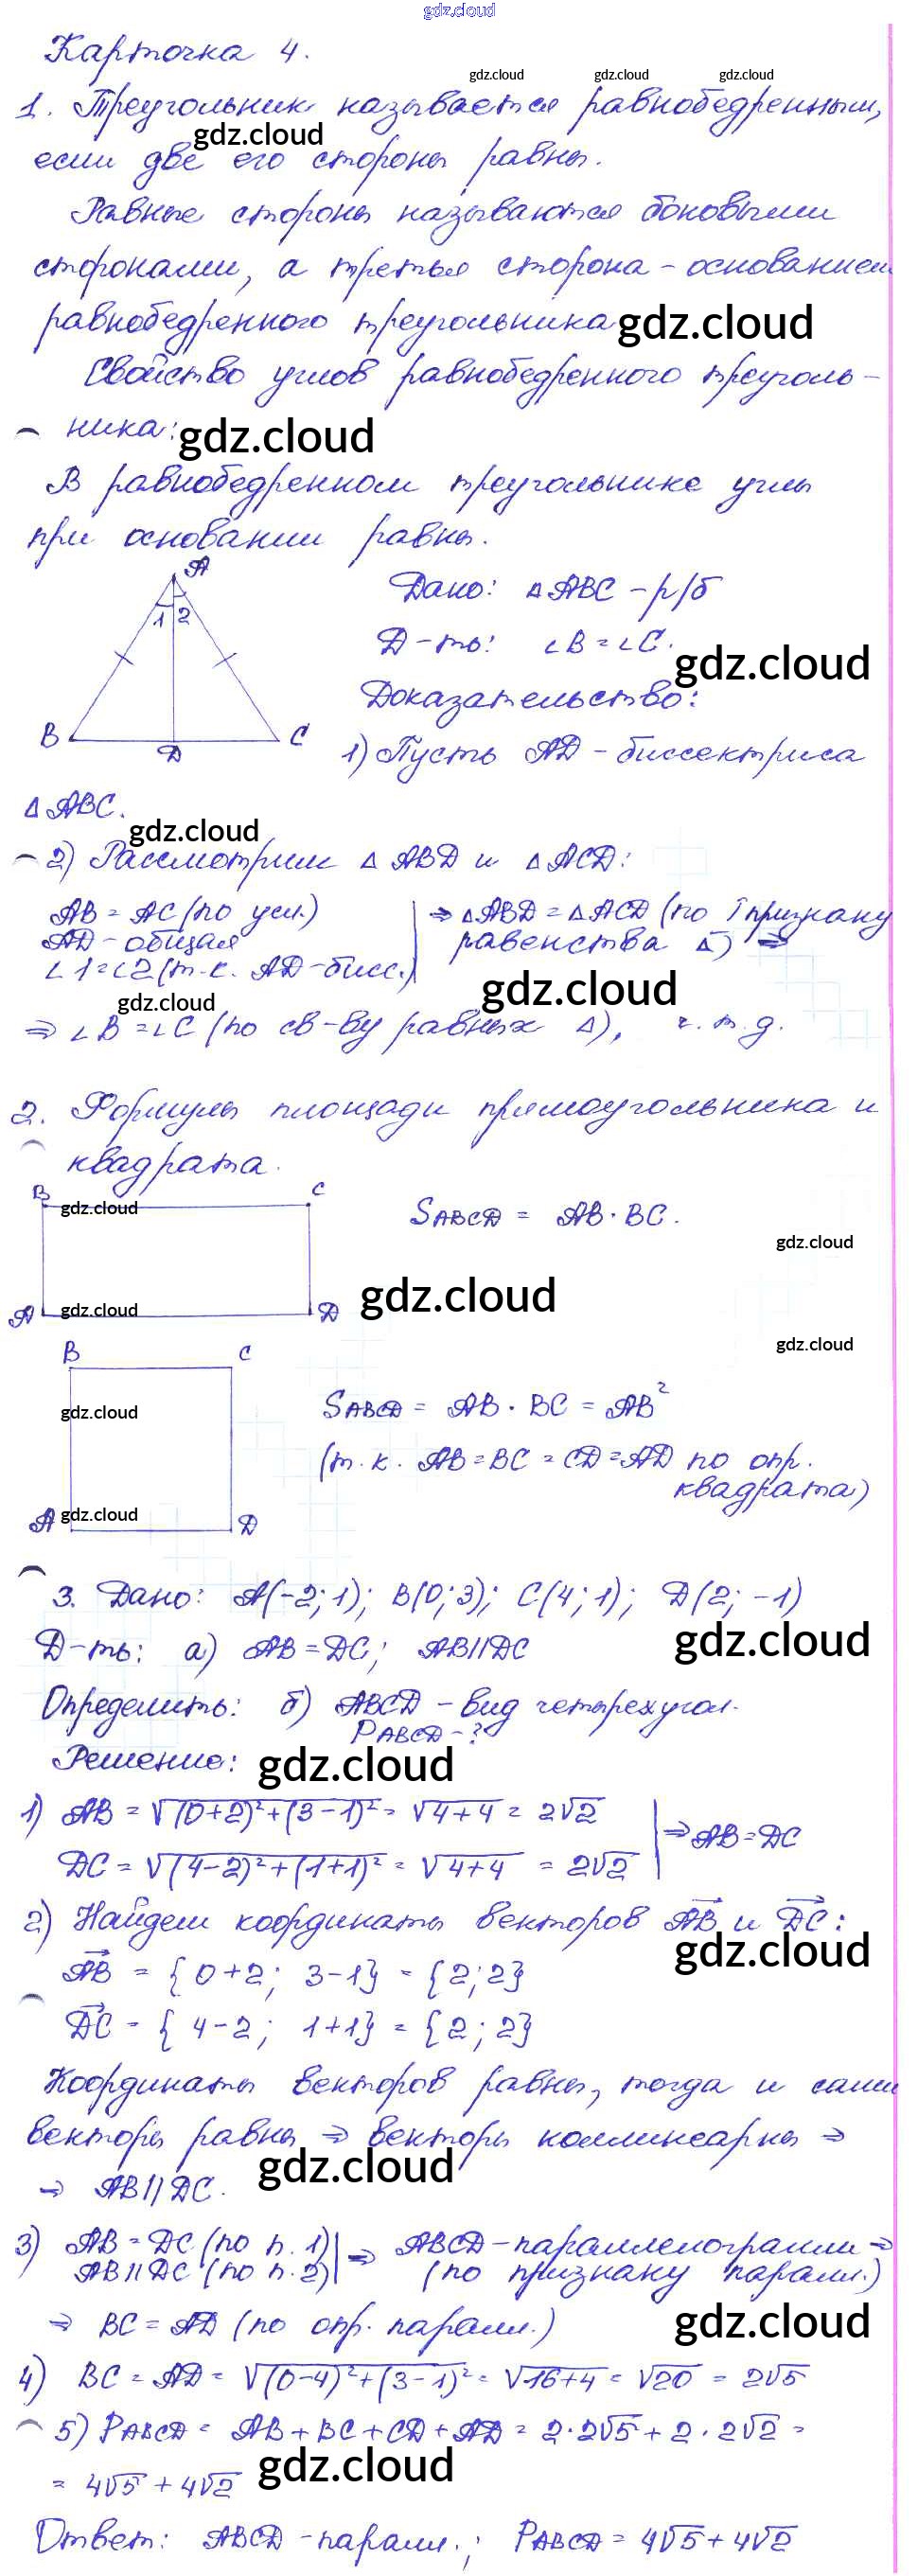 gdz.cloud
Карточка 4.
gdz.cloud gdz.cloud gdz.cloud
1. Треугольник называется равнобедренным,
gdz.cloud
если две его стороны равны.
Равные стороны называются боковыми
сторонами, а третья сторона – основанием
равнобедренного треугольника gdz.cloud
Свойство углов равнобедренного треуголь-
ника: gdz.cloud
В равнобедренном треугольнике углы
при основании равны.
A
1 2
B D C
Дано: △ABC – р/б
Д-ть: ∠B = ∠C.
gdz.cloud
Доказательство:
1) Пусть AD – биссектриса
△ABC.
gdz.cloud
2) Рассмотрим △ABD и △ACD:
AB = AC (по усл.)
AD – общая
∠1 = ∠2 (т.к. AD – бисс.)
⇒ △ABD = △ACD (по I признаку
равенства △) ⇒
gdz.cloud gdz.cloud
⇒ ∠B = ∠C (по св-ву равных △), ч.т.д.
2. Формулы площади прямоугольника и
квадрата.
B C
gdz.cloud
S ABCD = AB · BC.
gdz.cloud
gdz.cloud
A gdz.cloud D
gdz.cloud
B C
gdz.cloud
S ABCD = AB · BC = AB²
(т.к. AB = BC = CD = AD по опр.
квадрата)
A gdz.cloud D
3. Дано: A(-2; 1); B(0; 3); C(4; 1); D(2; -1)
gdz.cloud
Д-ть: а) AB = DC; AB || DC
Определить: б) ABCD – вид четырехугол.
P ABCD – ?
Решение: gdz.cloud
1) AB = √(0+2)²+(3-1)² = √4+4 = 2√2
DC = √(4-2)²+(1+1)² = √4+4 = 2√2
⇒ AB = DC
2) Найдем координаты векторов AB и DC:
gdz.cloud
AB = {0+2; 3-1} = {2; 2}
DC = {4-2; 1+1} = {2; 2}
Координаты векторов равны, тогда и сами
векторы равны ⇒ векторы коллинеарны ⇒
gdz.cloud
⇒ AB || DC.
3) AB = DC (по п. 1)
AB || DC (по п. 2)
⇒ ABCD – параллелограмм ⇒
(по признаку паралл.)
⇒ BC = AD (по опр. паралл.)
gdz.cloud
4) BC = AD = √(0-4)²+(3-1)² = √16+4 = √20 = 2√5
5) P ABCD = AB + BC + CD + AD = 2·2√5 + 2·2√2 =
gdz.cloud
= 4√5 + 4√2
Ответ: ABCD – паралл.; P ABCD = 4√5 + 4√2